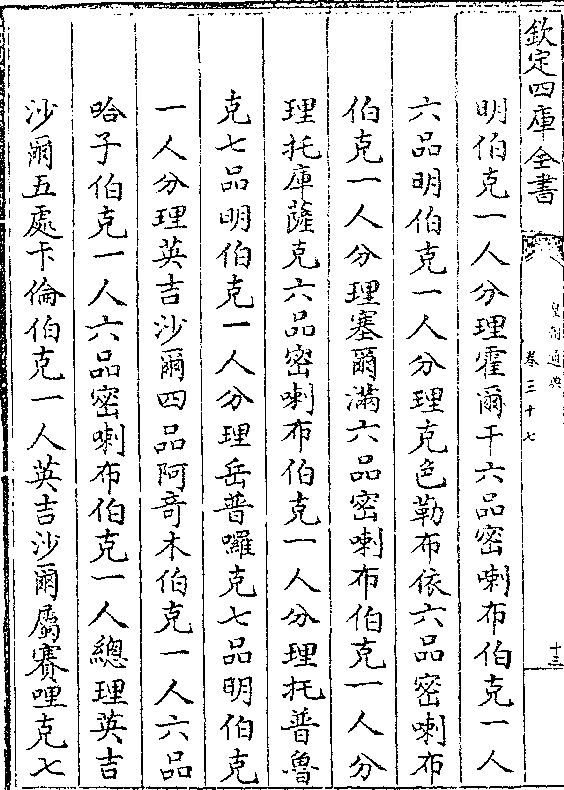 欽定四庫全書
皇朝通典
卷三十七
十三
明伯克一人分理霍爾干六品密喇布伯克一人
六品明伯克一人分理克色勒布依六品密喇布
伯克一人分理塞爾滿六品密喇布伯克一人分
理托庫薩克六品密喇布伯克一人分理托普魯
克七品明伯克一人分理岳普囉克七品明伯克
一人分理英吉沙爾四品阿奇木伯克一人六品
哈子伯克一人六品密喇布伯克一人總理英吉
沙爾五處卡倫伯克一人英吉沙爾屬賽哩克七